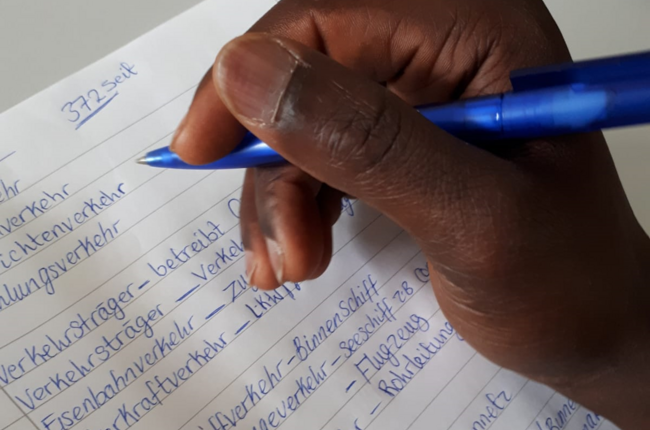 372 Seit
ehr
verkehr
ichtenverkehr
hlungsverkehr
verkehrsträger - betreibt
Verkehrsträger - Verke
Eisenbahnverkehr - Zu
erkraftverkehr - LKW
ffverkehr - Binnenschiff
neverkehr - seeschiff zB
- Flugzeug
- Rohrleitung
netz